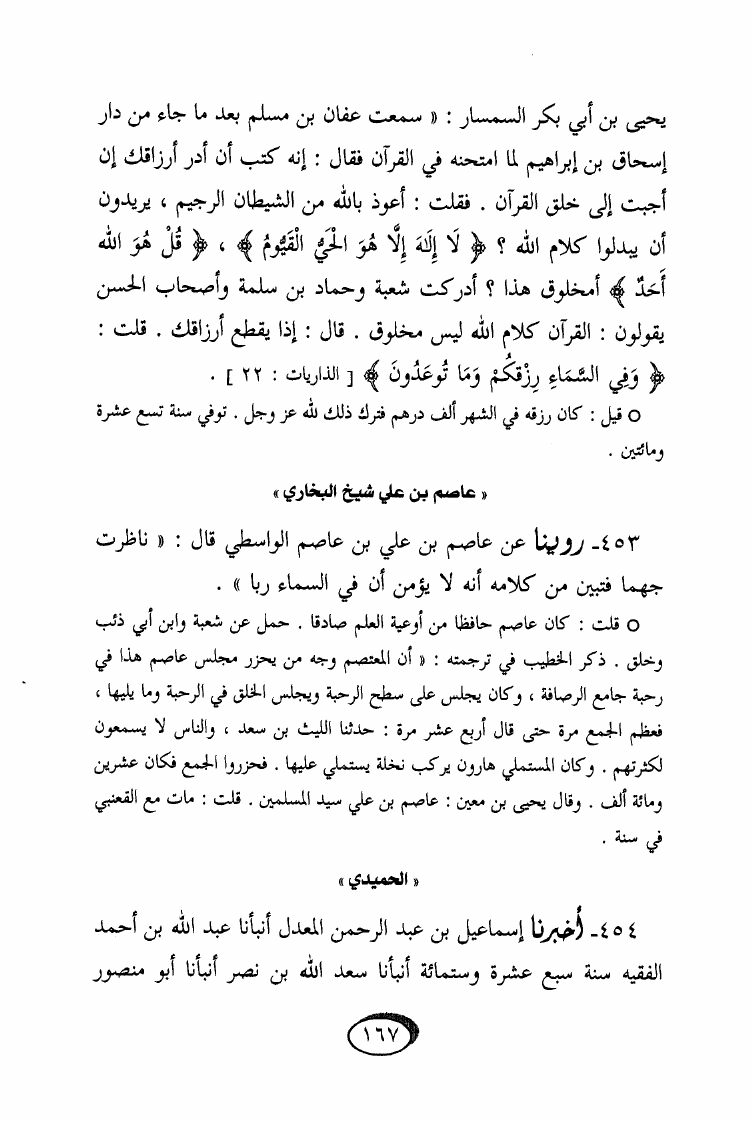 يحيى بن أبي بكر السمسار : « سمعت عفان بن مسلم بعد ما جاء من دار
إسحاق بن إبراهيم لما امتحنه في القرآن فقال : إنه كتب أن أدر أرزاقك إن
أجبت إلى خلق القرآن . فقلت : أعوذ بالله من الشيطان الرجيم ، يريدون
أن يبدلوا كلام الله ؟ ﴿ لَا إِلَٰهَ إِلَّا هُوَ الْحَيُّ الْقَيُّومُ ﴾ ، ﴿ قُلْ هُوَ الله
أَحَدٌ ﴾ أمخلوق هذا ؟ أدركت شعبة وحماد بن سلمة وأصحاب الحسن
يقولون : القرآن كلام الله ليس مخلوق . قال : إذا يقطع أرزاقك . قلت :
﴿ وَفِي السَّمَاءِ رِزْقُكُمْ وَمَا تُوعَدُونَ ﴾ [ الذاريات : ٢٢ ] .
○ قيل : كان رزقه في الشهر ألف درهم فترك ذلك لله عز وجل . توفي سنة تسع عشرة
ومائتين .
« عاصم بن علي شيخ البخاري »
٤٥٣ـ روينا عن عاصم بن علي بن عاصم الواسطي قال : « ناظرت
جهما فتبين من كلامه أنه لا يؤمن أن في السماء ربا » .
○ قلت : كان عاصم حافظا من أوعية العلم صادقا . حمل عن شعبة وابن أبي ذئب
وخلق . ذكر الخطيب في ترجمته : « أن المعتصم وجه من يحزر مجلس عاصم هذا في
رحبة جامع الرصافة ، وكان يجلس على سطح الرحبة ويجلس الخلق في الرحبة وما يليها ،
فعظم الجمع مرة حتى قال أربع عشر مرة : حدثنا الليث بن سعد ، والناس لا يسمعون
لكثرتهم . وكان المستملي هارون يركب نخلة يستملي عليها . فحزروا الجمع فكان عشرين
ومائة ألف . وقال يحيى بن معين : عاصم بن علي سيد المسلمين . قلت : مات مع القعنبي
في سنة .
« الحميدي »
٤٥٤ـ أخبرنا إسماعيل بن عبد الرحمن المعدل أنبأنا عبد الله بن أحمد
الفقيه سنة سبع عشرة وستمائة أنبأنا سعد الله بن نصر أنبأنا أبو منصور
١٦٧